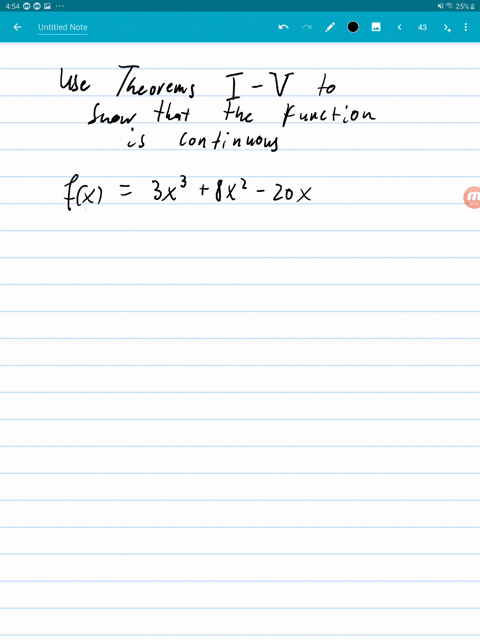 4:54
25%
Untitled Note
43
Use Theorems I - V to
show that the function
is continuous
f(x) = 3x³ + 8x² - 20x